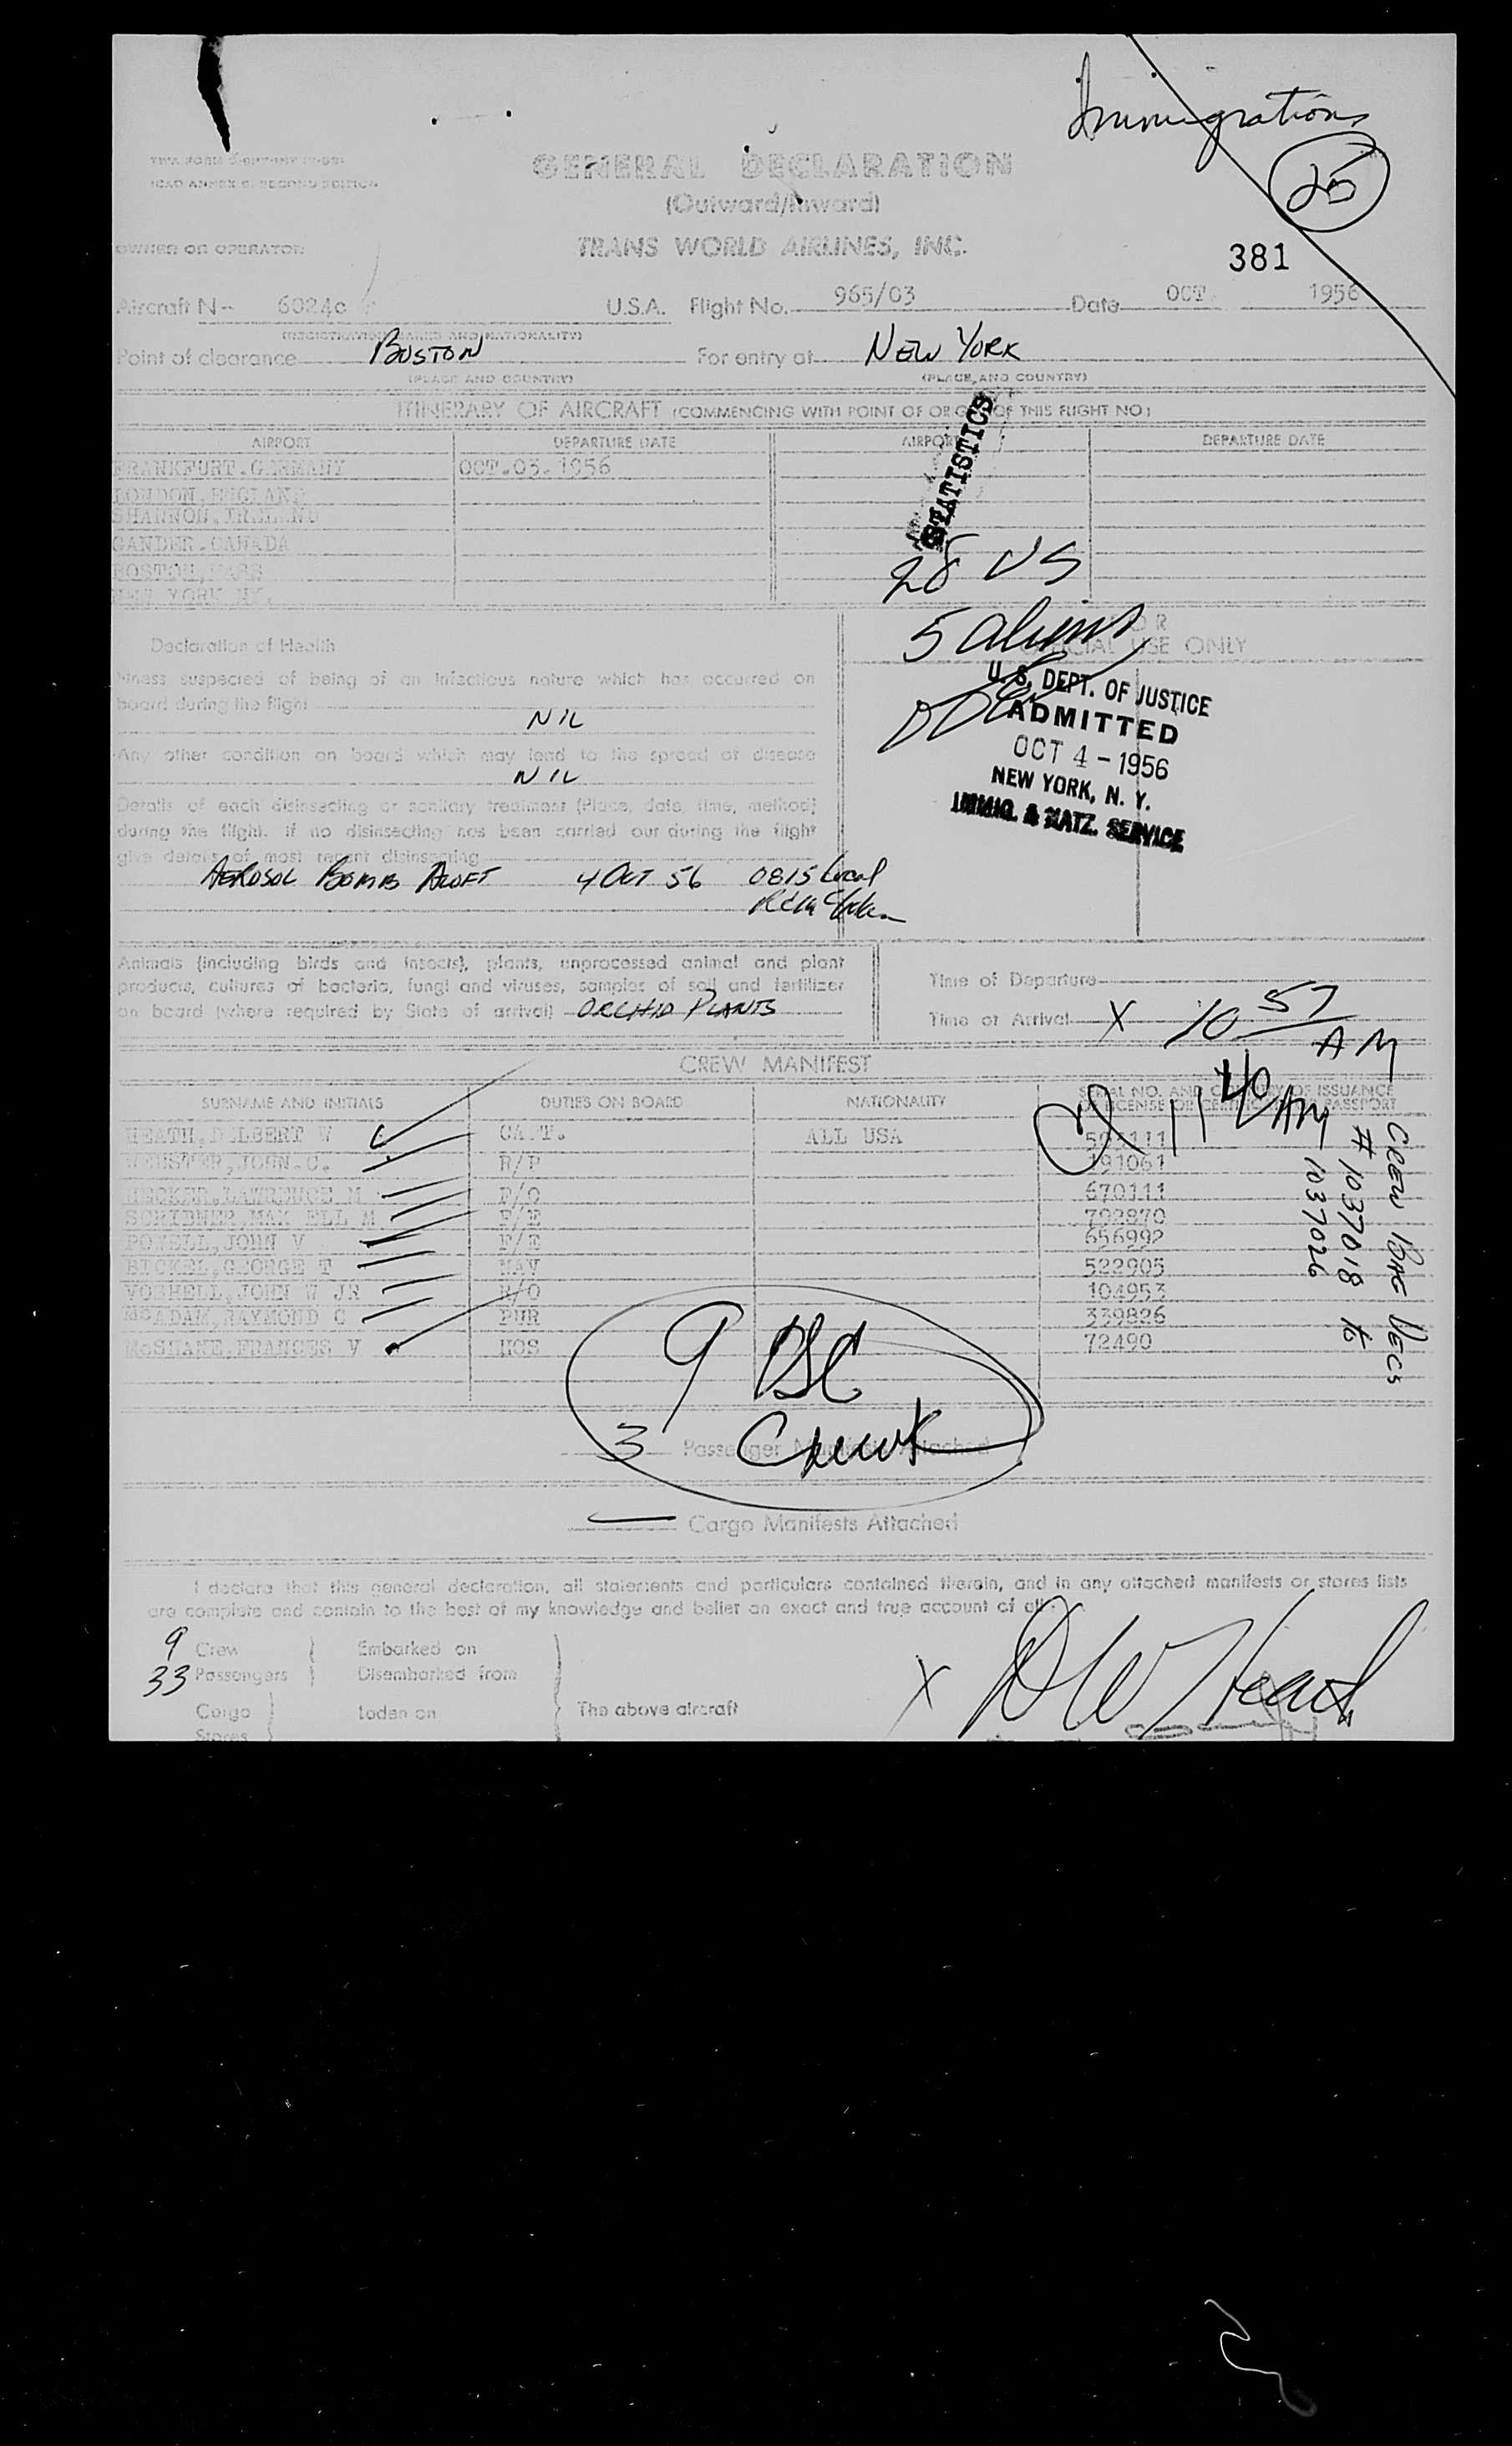 Immigrations
25
GENERAL DECLARATION
ICAO ANNEX 9, SECOND EDITION
(Outward/Inward)
OWNER OR OPERATOR
TRANS WORLD AIRLINES, INC.
381
Aircraft N- 6024c U.S.A. Flight No. 965/03 Date OCT 1956
(REGISTRATION MARKS AND NATIONALITY)
Point of clearance BOSTON For entry at NEW YORK
(PLACE AND COUNTRY) (PLACE AND COUNTRY)
ITINERARY OF AIRCRAFT (COMMENCING WITH POINT OF ORIGIN OF THIS FLIGHT NO.)
AIRPORT DEPARTURE DATE AIRPORT DEPARTURE DATE
FRANKFURT.GERMANY OCT.03.1956
LONDON.ENGLAND
SHANNON,IRELAND
GANDER.CANADA
BOSTON,MASS
NEW YORK NY.
STATISTICS
28 US
5 aliens
FOR
OFFICIAL USE ONLY
Declaration of Health
Illness suspected of being of an infectious nature which has occurred on
board during the flight
NIL
Any other condition on board which may lend to the spread of disease
NIL
U. S. DEPT. OF JUSTICE
ADMITTED
OCT 4 - 1956
NEW YORK, N. Y.
IMMIG. & NATZ. SERVICE
Details of each disinsecting or sanitary treatment (Place, date, time, method)
during the flight. If no disinsecting has been carried out during the flight
give details of most recent disinsecting
AEROSOL BOMB ALOFT 4 OCT 56 0815 Local
Animals (including birds and insects), plants, unprocessed animal and plant
products, cultures of bacteria, fungi and viruses, samples of soil and fertilizer
on board (where required by State of arrival) ORCHID PLANTS
Time of Departure
Time of Arrival X 10 57 AM
CREW MANIFEST
11 40 AM
SURNAME AND INITIALS DUTIES ON BOARD NATIONALITY SERIAL NO. AND COUNTRY OF ISSUANCE
OF LICENSE OR CERTIFICATE OR PASSPORT
HEATH,DELBERT W CAPT. ALL USA
WEBSTER,JOHN.C. R/P 191061
HECKER,LAWRENCE M F/O 670111
SCRIBNER,MAXWELL M F/E 792870
POWELL,JOHN V F/E 656992
BICKEL,GEORGE T NAV 522905
VOSHELL,JOHN W JR R/O 104953
McADAM,RAYMOND C PUR 339826
McSHANE,FRANCES V HOS 72490
CREW BAG DECS
# 1037018 to
1037026
9 USC
Crew
3 Passenger Manifests Attached
Cargo Manifests Attached
I declare that this general declaration, all statements and particulars contained therein, and in any attached manifests or stores lists
are complete and contain to the best of my knowledge and belief an exact and true account of all
9 Crew Embarked on
33 Passengers Disembarked from
Cargo Loden on The above aircraft
Stores
X D W Heath